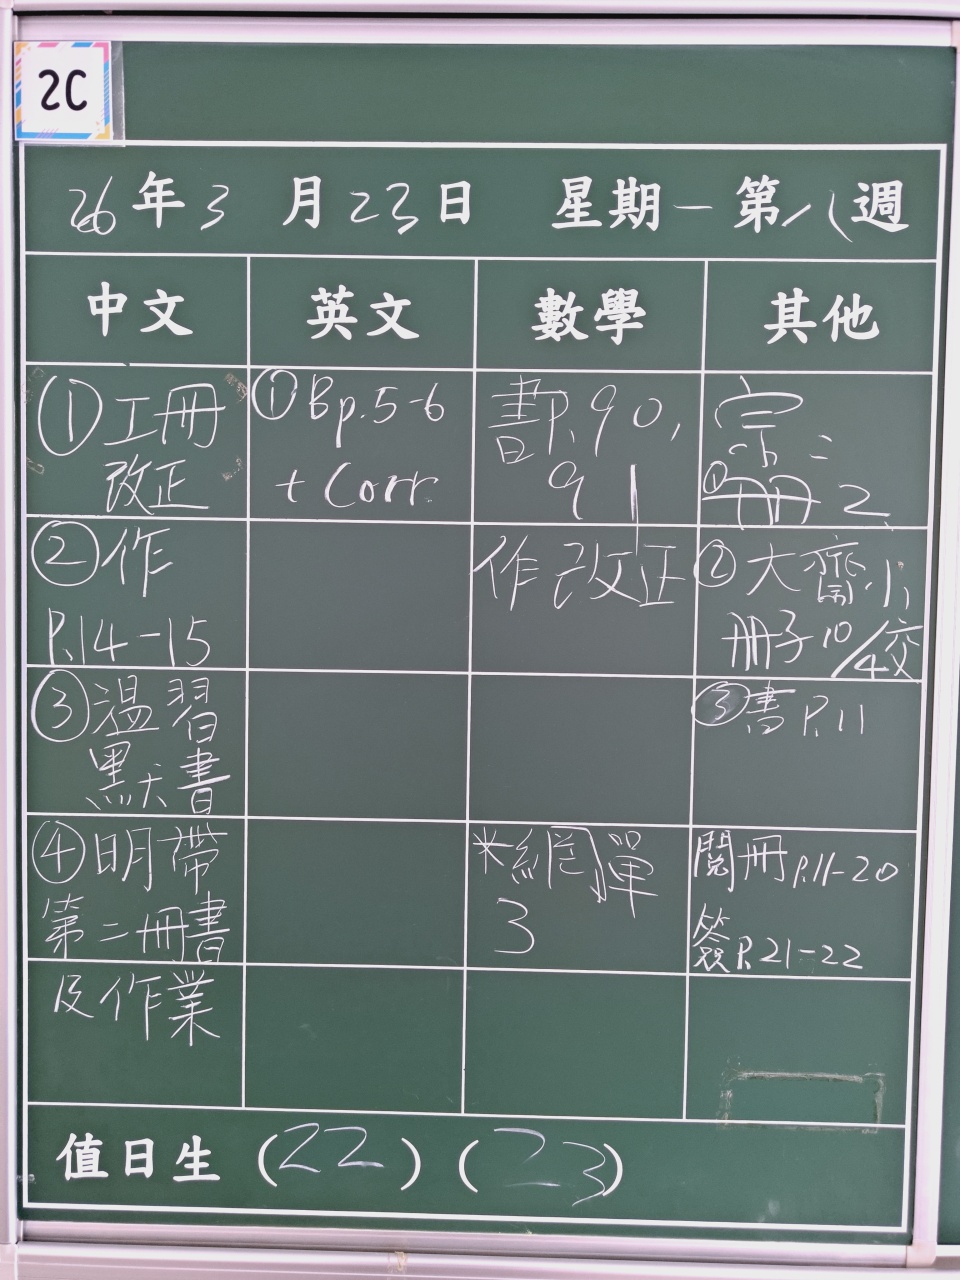 2C
26年3月23日 星期一 第八週
中文 英文 數學 其他
①工冊
改正
②作
P.14-15
③溫習
默書
④明帶
第二冊書
及作業
①Bp.5-6
+ Corr.
書P.90,
91
作改正
*網單
3
宗:
①冊2
②大齋小
冊子10/4交
③書P.11
閱冊P.11-20
簽P.21-22
值日生 (22) (23)